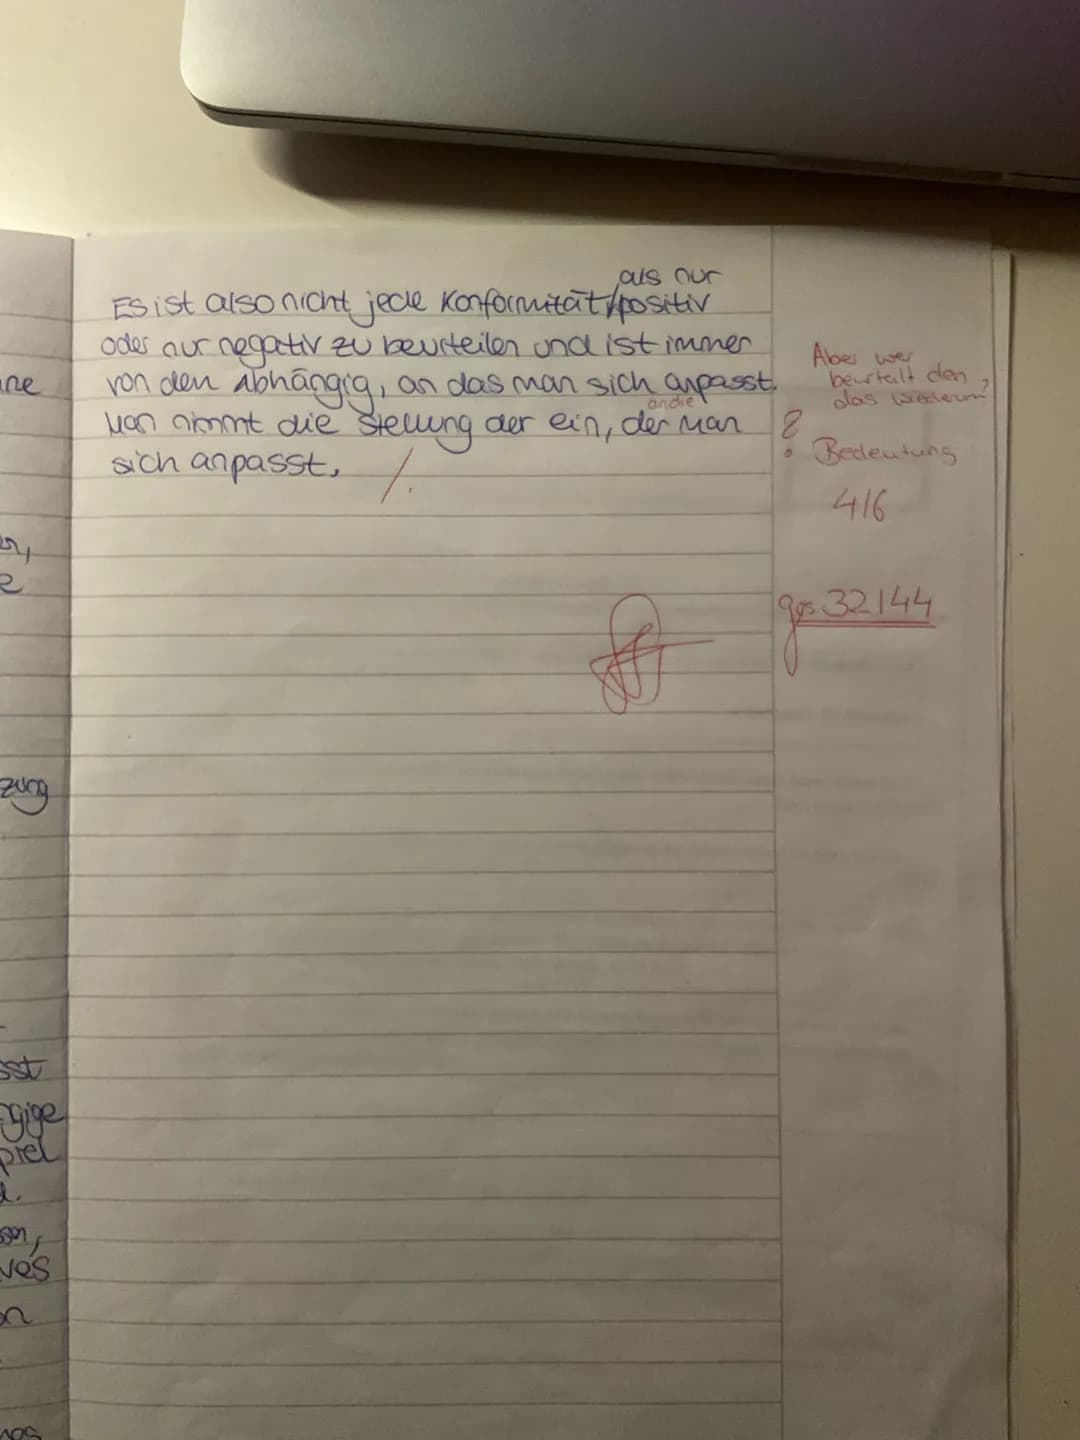 als nur
Es ist also nicht jede Konformität positiv
oder nur negativ zu beurteilen und ist immer
von den Abhängig, an das man sich anpasst.
an die
Man nimmt die Stellung der ein, der Man
sich anpasst.
Aber wer
beurteilt den
das wiederum?
?
Bedeutung
4/6
ges. 32/44
ne
en,
e
zung
sst
ngige
piel
d.
sen,
ves
on